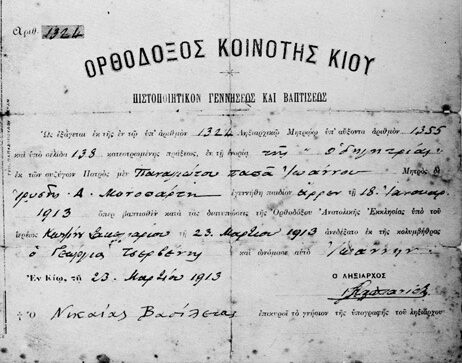 Ἀριθ. 1324
ΟΡΘΟΔΟΞΟΣ ΚΟΙΝΟΤΗΣ ΚΙΟΥ
ΠΙΣΤΟΠΟΙΗΤΙΚΟΝ ΓΕΝΝΗΣΕΩΣ ΚΑΙ ΒΑΠΤΙΣΕΩΣ
Ὡς ἐξάγεται ἐκ τῆς ἐν τῷ ὑπ' ἀριθμὸν 1324 Ληξιαρχικῷ Μητρώῳ ὑπ' αὔξοντα ἀριθμὸν 1355
καὶ ὑπὸ σελίδα 133 κατεστρωμένης πράξεως, ἐν τῇ ἐνορίᾳ τῆς Ὁδηγητρίας
ἐκ τῶν συζύγων Πατρὸς μὲν Παναγιώτου παπᾶ Ἰωάννου Μητρὸς δὲ
ἐγεννήθη παιδίον ἄρρεν τῇ 18 Ἰανουαρ.
1913 ὅπερ βαπτισθὲν κατὰ τὰς διατυπώσεις τῆς Ὀρθοδόξου Ἀνατολικῆς Ἐκκλησίας ὑπὸ τοῦ
ἱερέως τῇ 23 Μαρτίου 1913 ἀνεδέξατο ἐκ τῆς κολυμβήθρας
ὁ καὶ ὠνόμασε αὐτὸ Ἰωάννην
Ἐν Κίῳ, τῇ 23 Μαρτίου 1913
Ο ΛΗΞΙΑΡΧΟΣ
† Ὁ Νικαίας Βασίλειος ἐπικυροῖ τὸ γνήσιον τῆς ὑπογραφῆς τοῦ ληξιάρχου